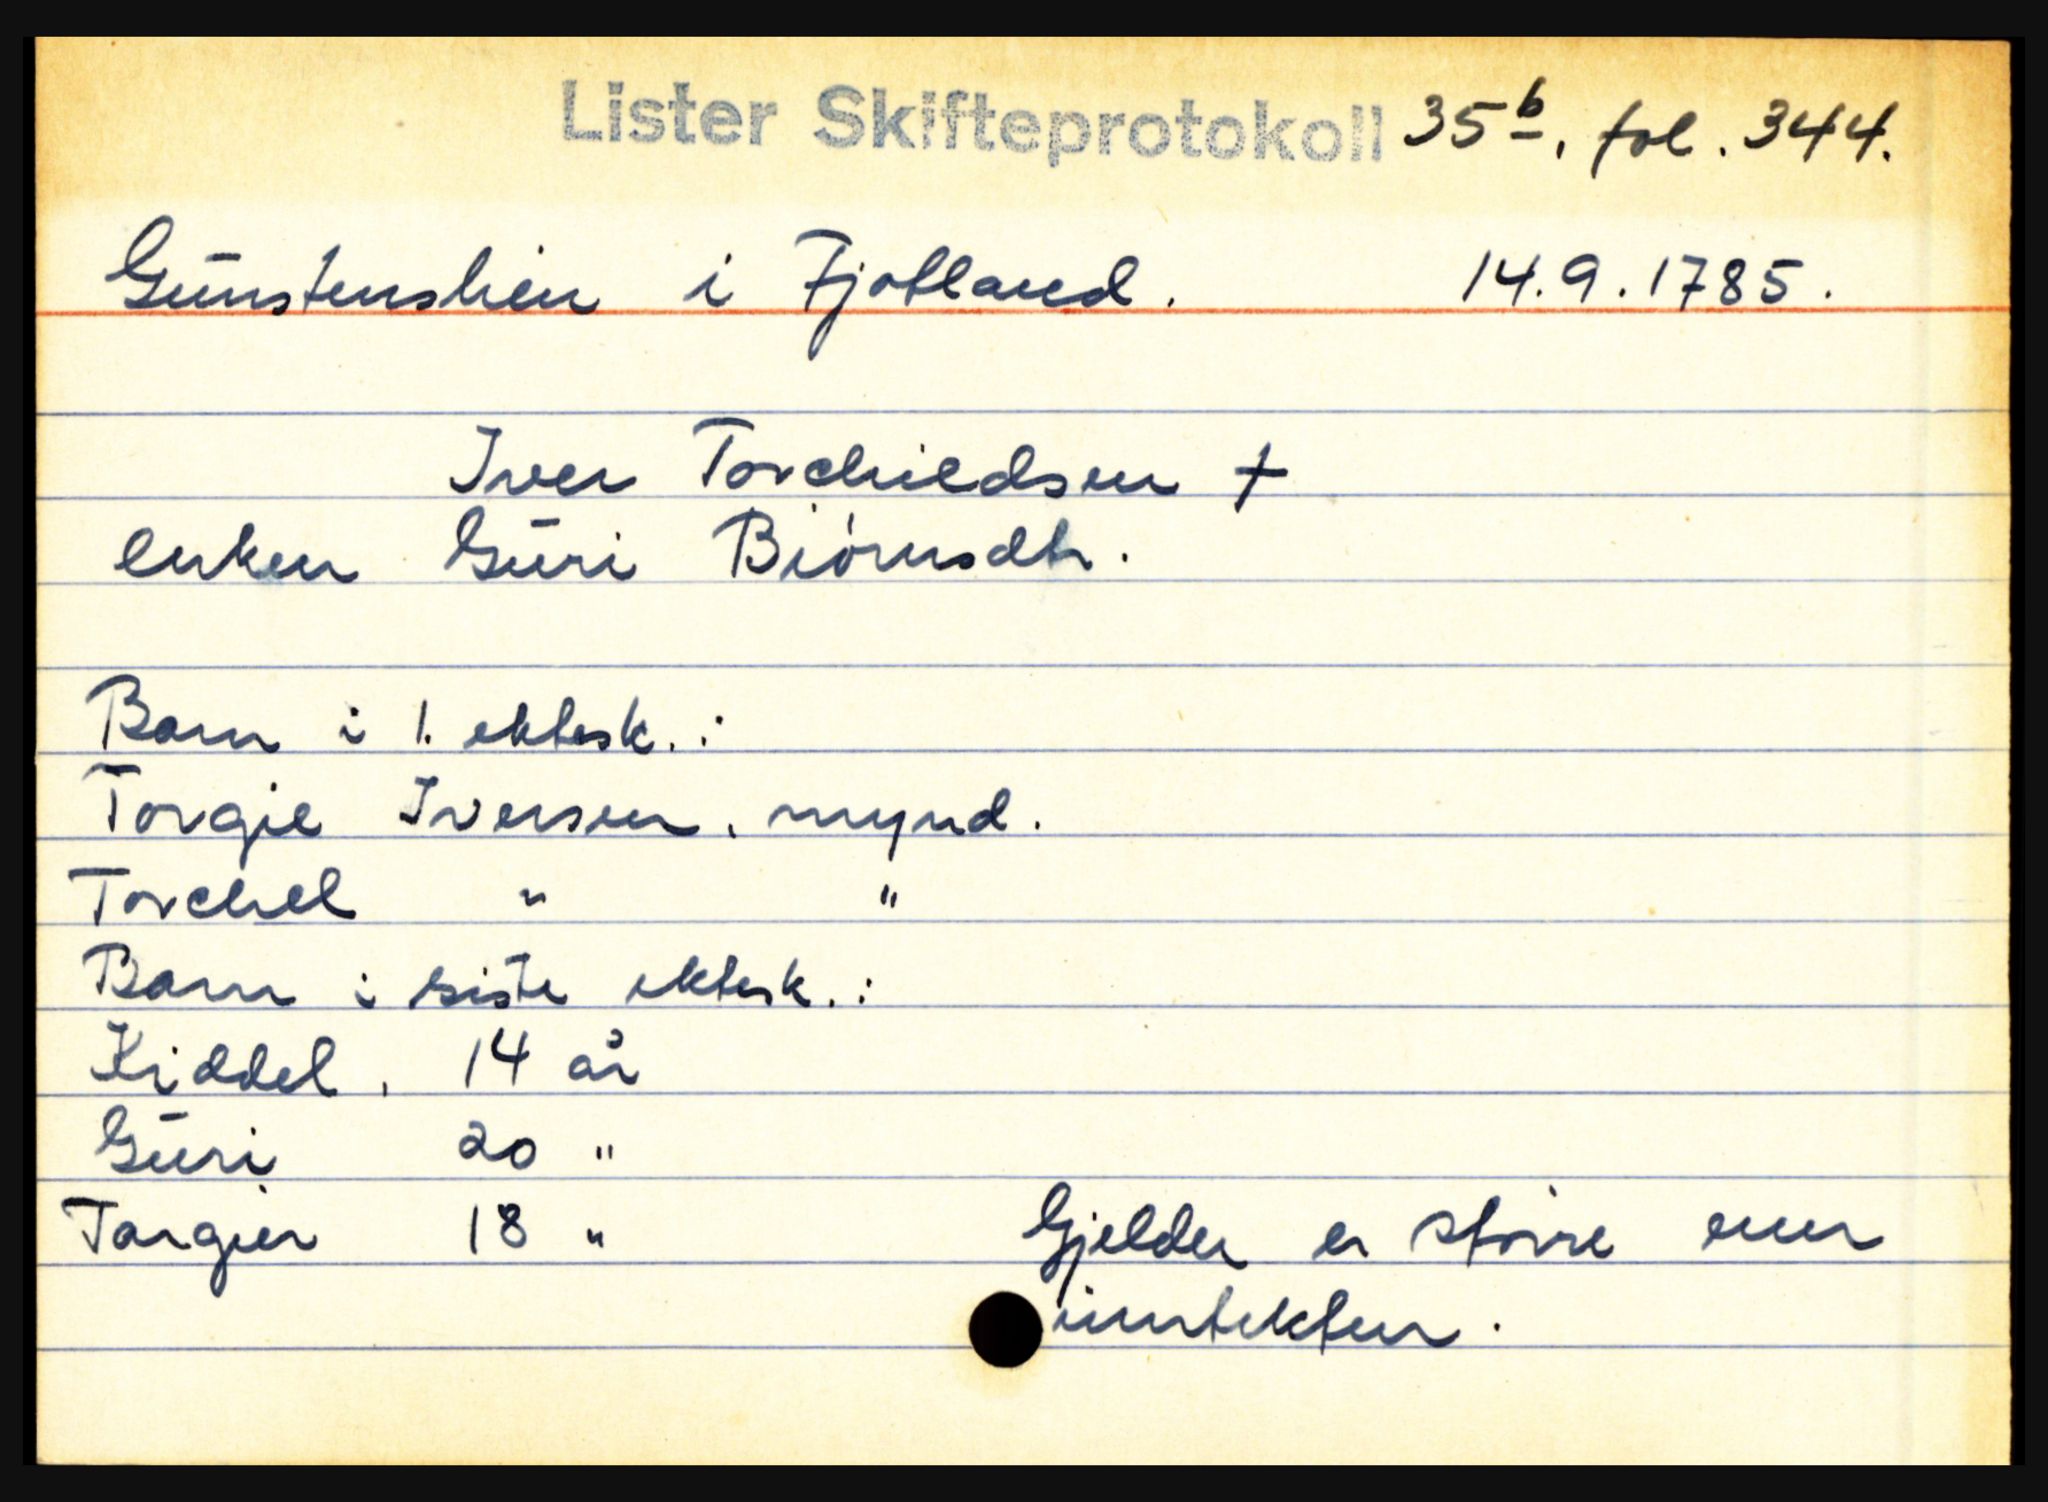 Lister Skifteprotokoll 35b, fol. 344.
Gunstenslien i Fjotland. 14.9.1785.
Iver Torchildsen †
enken Guri Biörnsdtr.
Barn i 1. ektesk.:
Torgie Iversen, mynd.
Torchel " "
Barn i siste ektesk.:
Kiddel, 14 år
Guri 20 "
Torgier 18 "
Gjelden er større enn
inntekten.